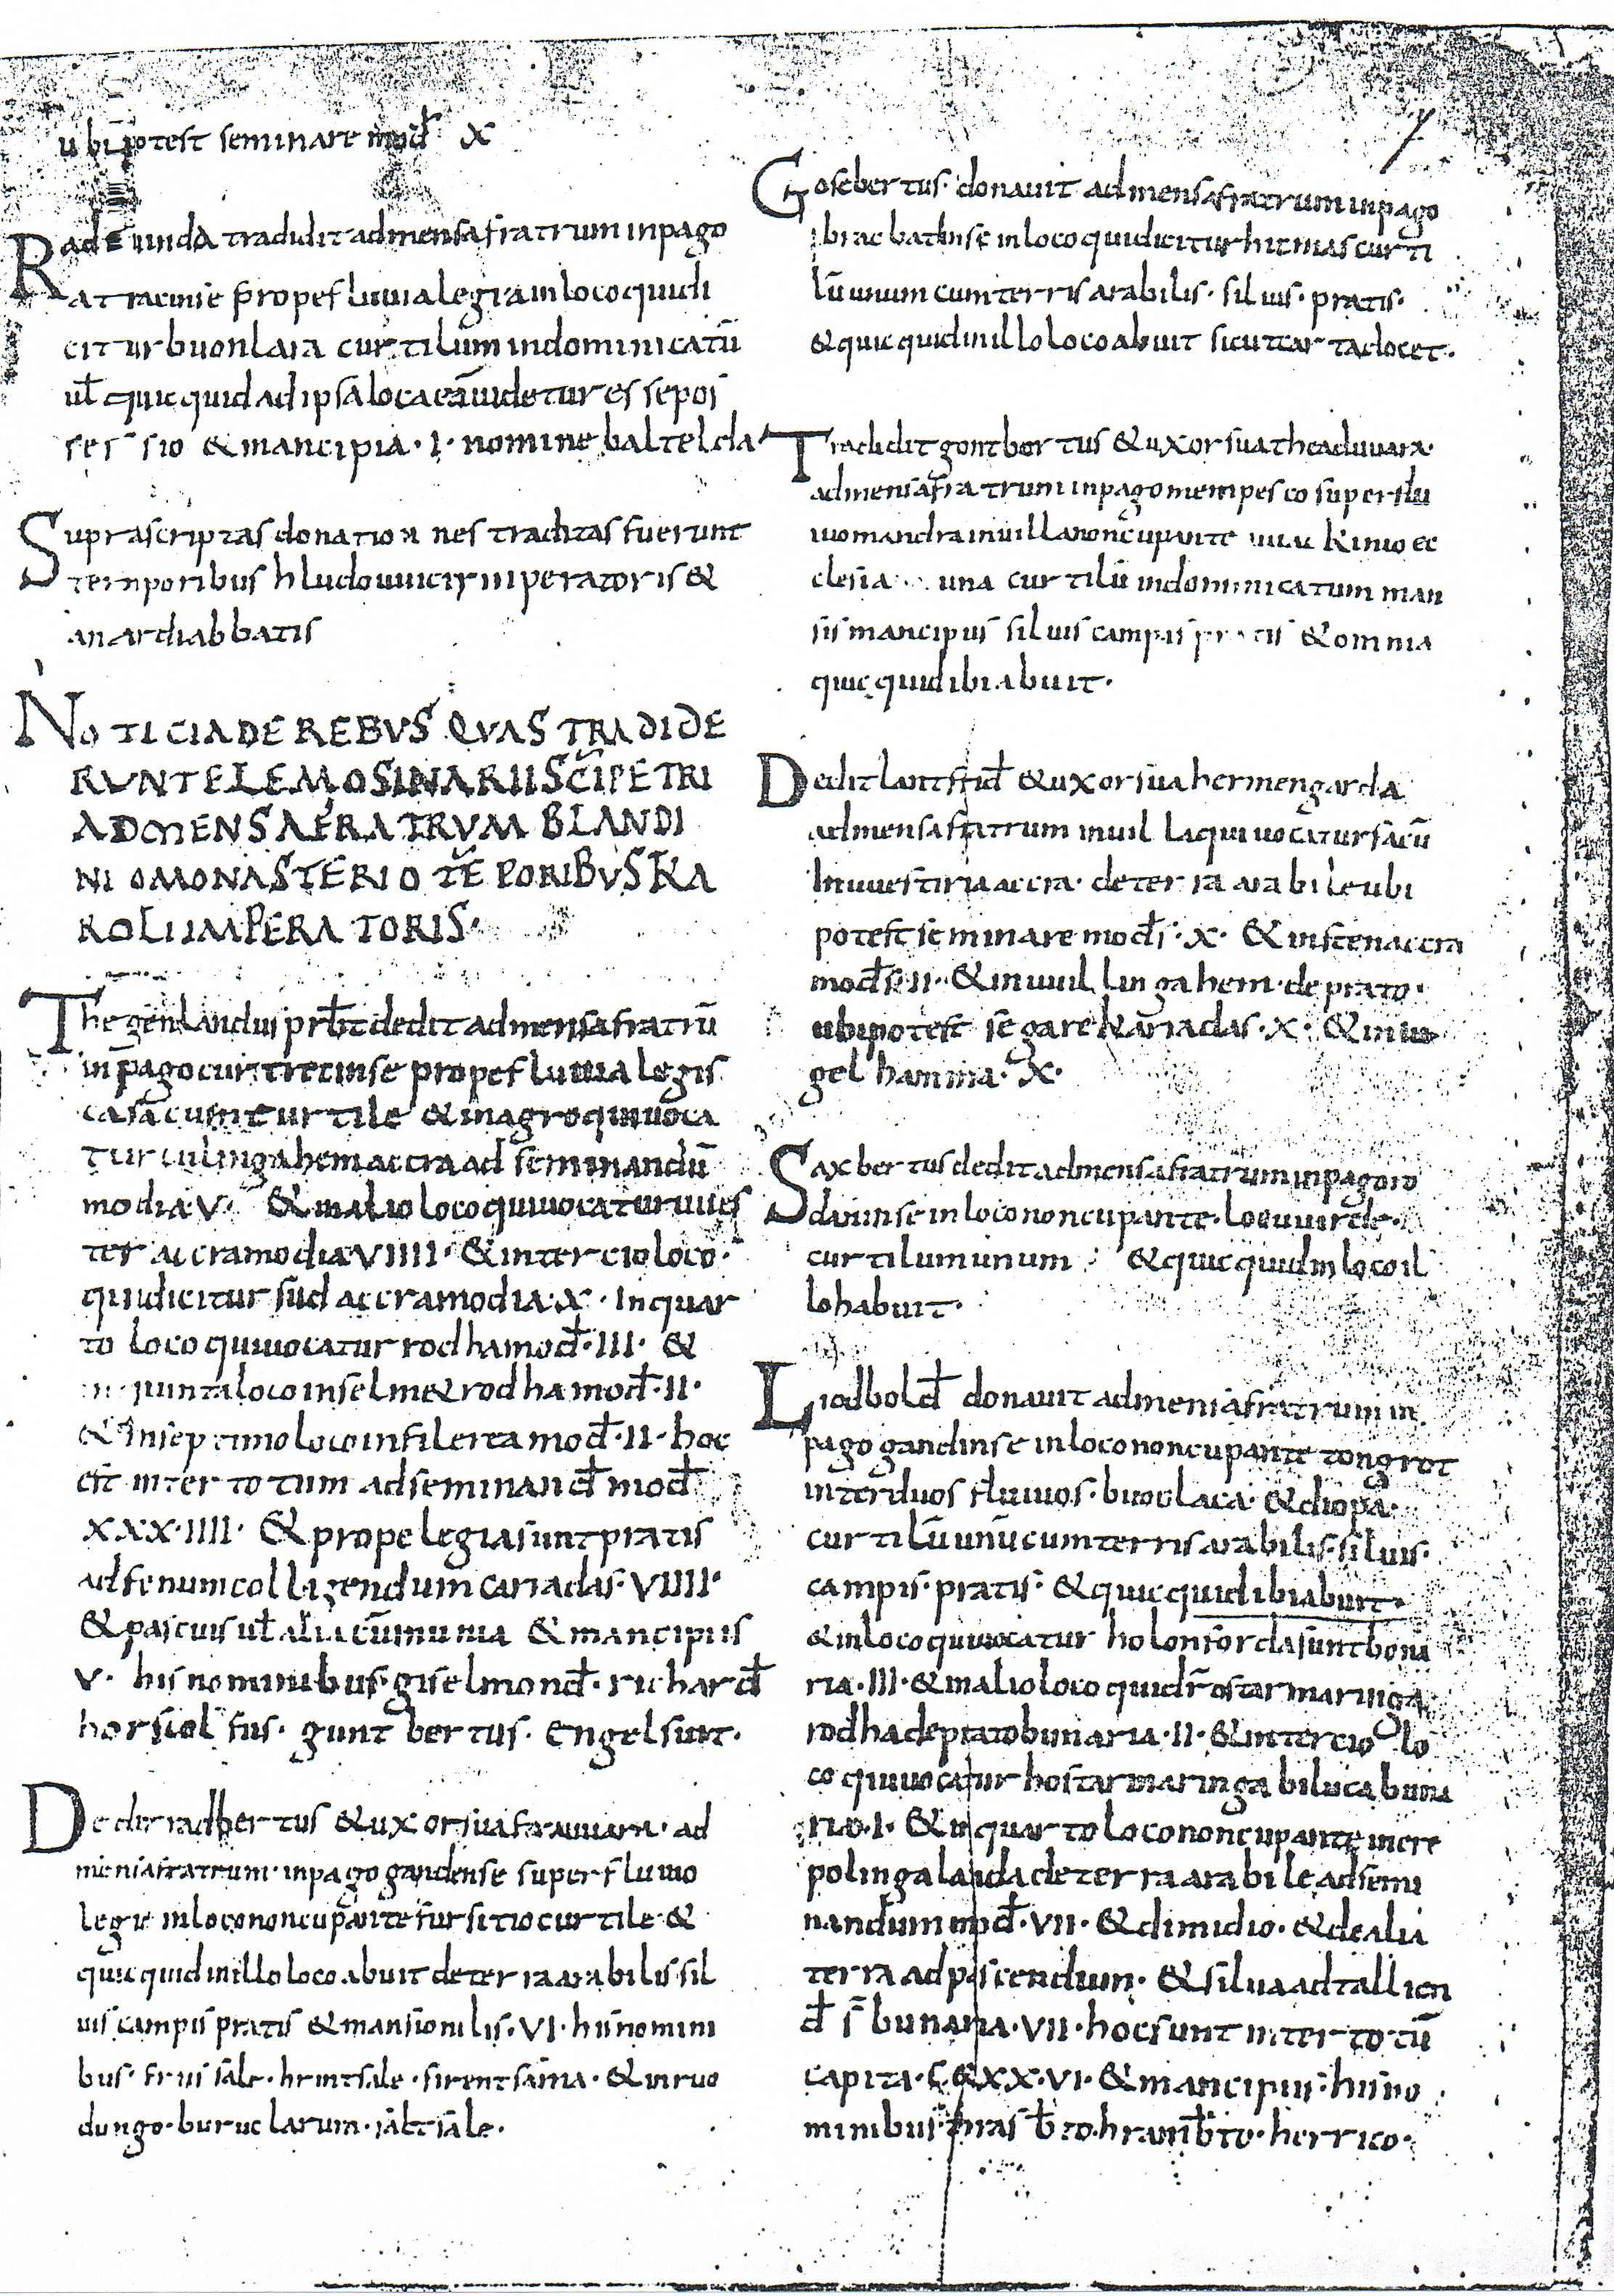 ubi potest seminare mod̄ X
Radelinda tradidit ad mensa fratrum in pago
atracinse prope fluvia legia in loco qui di
citur buonlara curtilum indominicatū
ul̄ quicquid ad ipsa loca eā uidetur esse pos
sessio & mancipia · I · nomine baltelda
Suprascriptas donatio nes traditas fuerunt
temporibus hludouuici imperatoris &
anardi abbatis
NOTICIA DE REBVS QVAS TRADIDE
RVNT ELEMOSINARII SC̄I PETRI
AD MENSA FRATRVM BLANDI
NIO MONASTERIO TĒPORIBVS KA
ROLI IMPERATORIS ·
Thegenlandus prb̄t dedit ad mensa fratrū
in pago curtrecinse prope fluuia legis
casa cum curtile & in agro qui uoca
tur culingahem accra ad seminandū
modia · V · & in alio loco qui uocatur uues
ter accra modia VIIII · & in tercio loco ·
qui dicitur sud accra modia · X · In quar
to loco qui uocatur rodha mod̄ · III · &
in quinta loco in selmet rodha mod̄ · II ·
& In septimo loco in filerea mod̄ · II · hoc
est inter totum ad seminand̄ mod̄
XXX · IIII · & prope legia sunt pratis
ad fenum colligendum cariadas · VIIII ·
& pascuis ul̄ alia cūmunia & mancipiis
V · his nominibus · giselmond̄ · richard̄
horsiolfus · guntbertus · engelsuit ·
Dedit radbertus & uxor sua frauuara · ad
mensa fratrum · in pago gandense super fluuio
legie in loco noncupante fursitio curtile &
quicquid in illo loco abuit de terra arabilis · sil
uis campis pratis & mansionilis · VI · his nomini
bus · fruisale · hrintsale · sirentsama · & in ruo
dungo · buruclarum · saltsale ·
Gosebertus · donauit ad mensa fratrum in pago
bracbatinse in loco qui dicitur hicmas curti
lū unum cum terris arabilis · siluis · pratis ·
& quicquid in illo loco abuit sicut carta docet ·
Tradidit gontbertus & uxor sua theaduuara ·
ad mensa fratrum in pago mempesco super flu
uio mandra in uilla noncupante Kinio ec
clesia una curtilū indominicatum man
sis mancipiis siluis campis pratis & omnia
quicquid ibi abuit ·
Dedit lantfrid̄ & uxor sua hermengarda
ad mensa fratrum in uilla qui uocatur facū
In uuestiria accra · de terra arabile ubi
potest seminare mod̄s · X · & in stenaccra
mod̄s · II · & in uuillingahem · de prato ·
ubi potest segare Kariadas · X · & in uo
gelhamma · X ·
Saxbertus dedit ad mensa fratrum in pago ro
daninse in loco noncupante · locuuirde ·
curtilum unum & quicquid in loco il
lo habuit ·
Liodbold̄ donauit ad mensa fratrum in
pago gandinse in loco noncupante tongrot
inter duos fluuios · buoclaca · & diopa ·
curtilū unū cum terris arabilis · siluis ·
campis · pratis · & quicquid ibi abuit ·
& in loco qui uocatur holonforda sunt bona
ria · III · & in alio loco qui dr̄ ostarmaringa
rodha de prato bunaria · II · & in tercio lo
co qui uocatur hostarmaringa biluca buna
rio · I · & in quarto loco noncupante mere
polingalanda de terra arabile ad semi
nandum mod̄ · VII · & dimidio · & de alia
terra ad pascendum · & silua ad tallien
d̄ s̄ bunaria · VII · hoc sunt inter totū
capita · CCXX · VI · & mancipiis · his no
minibus · thrasb̄to · hramb̄to · herrico ·